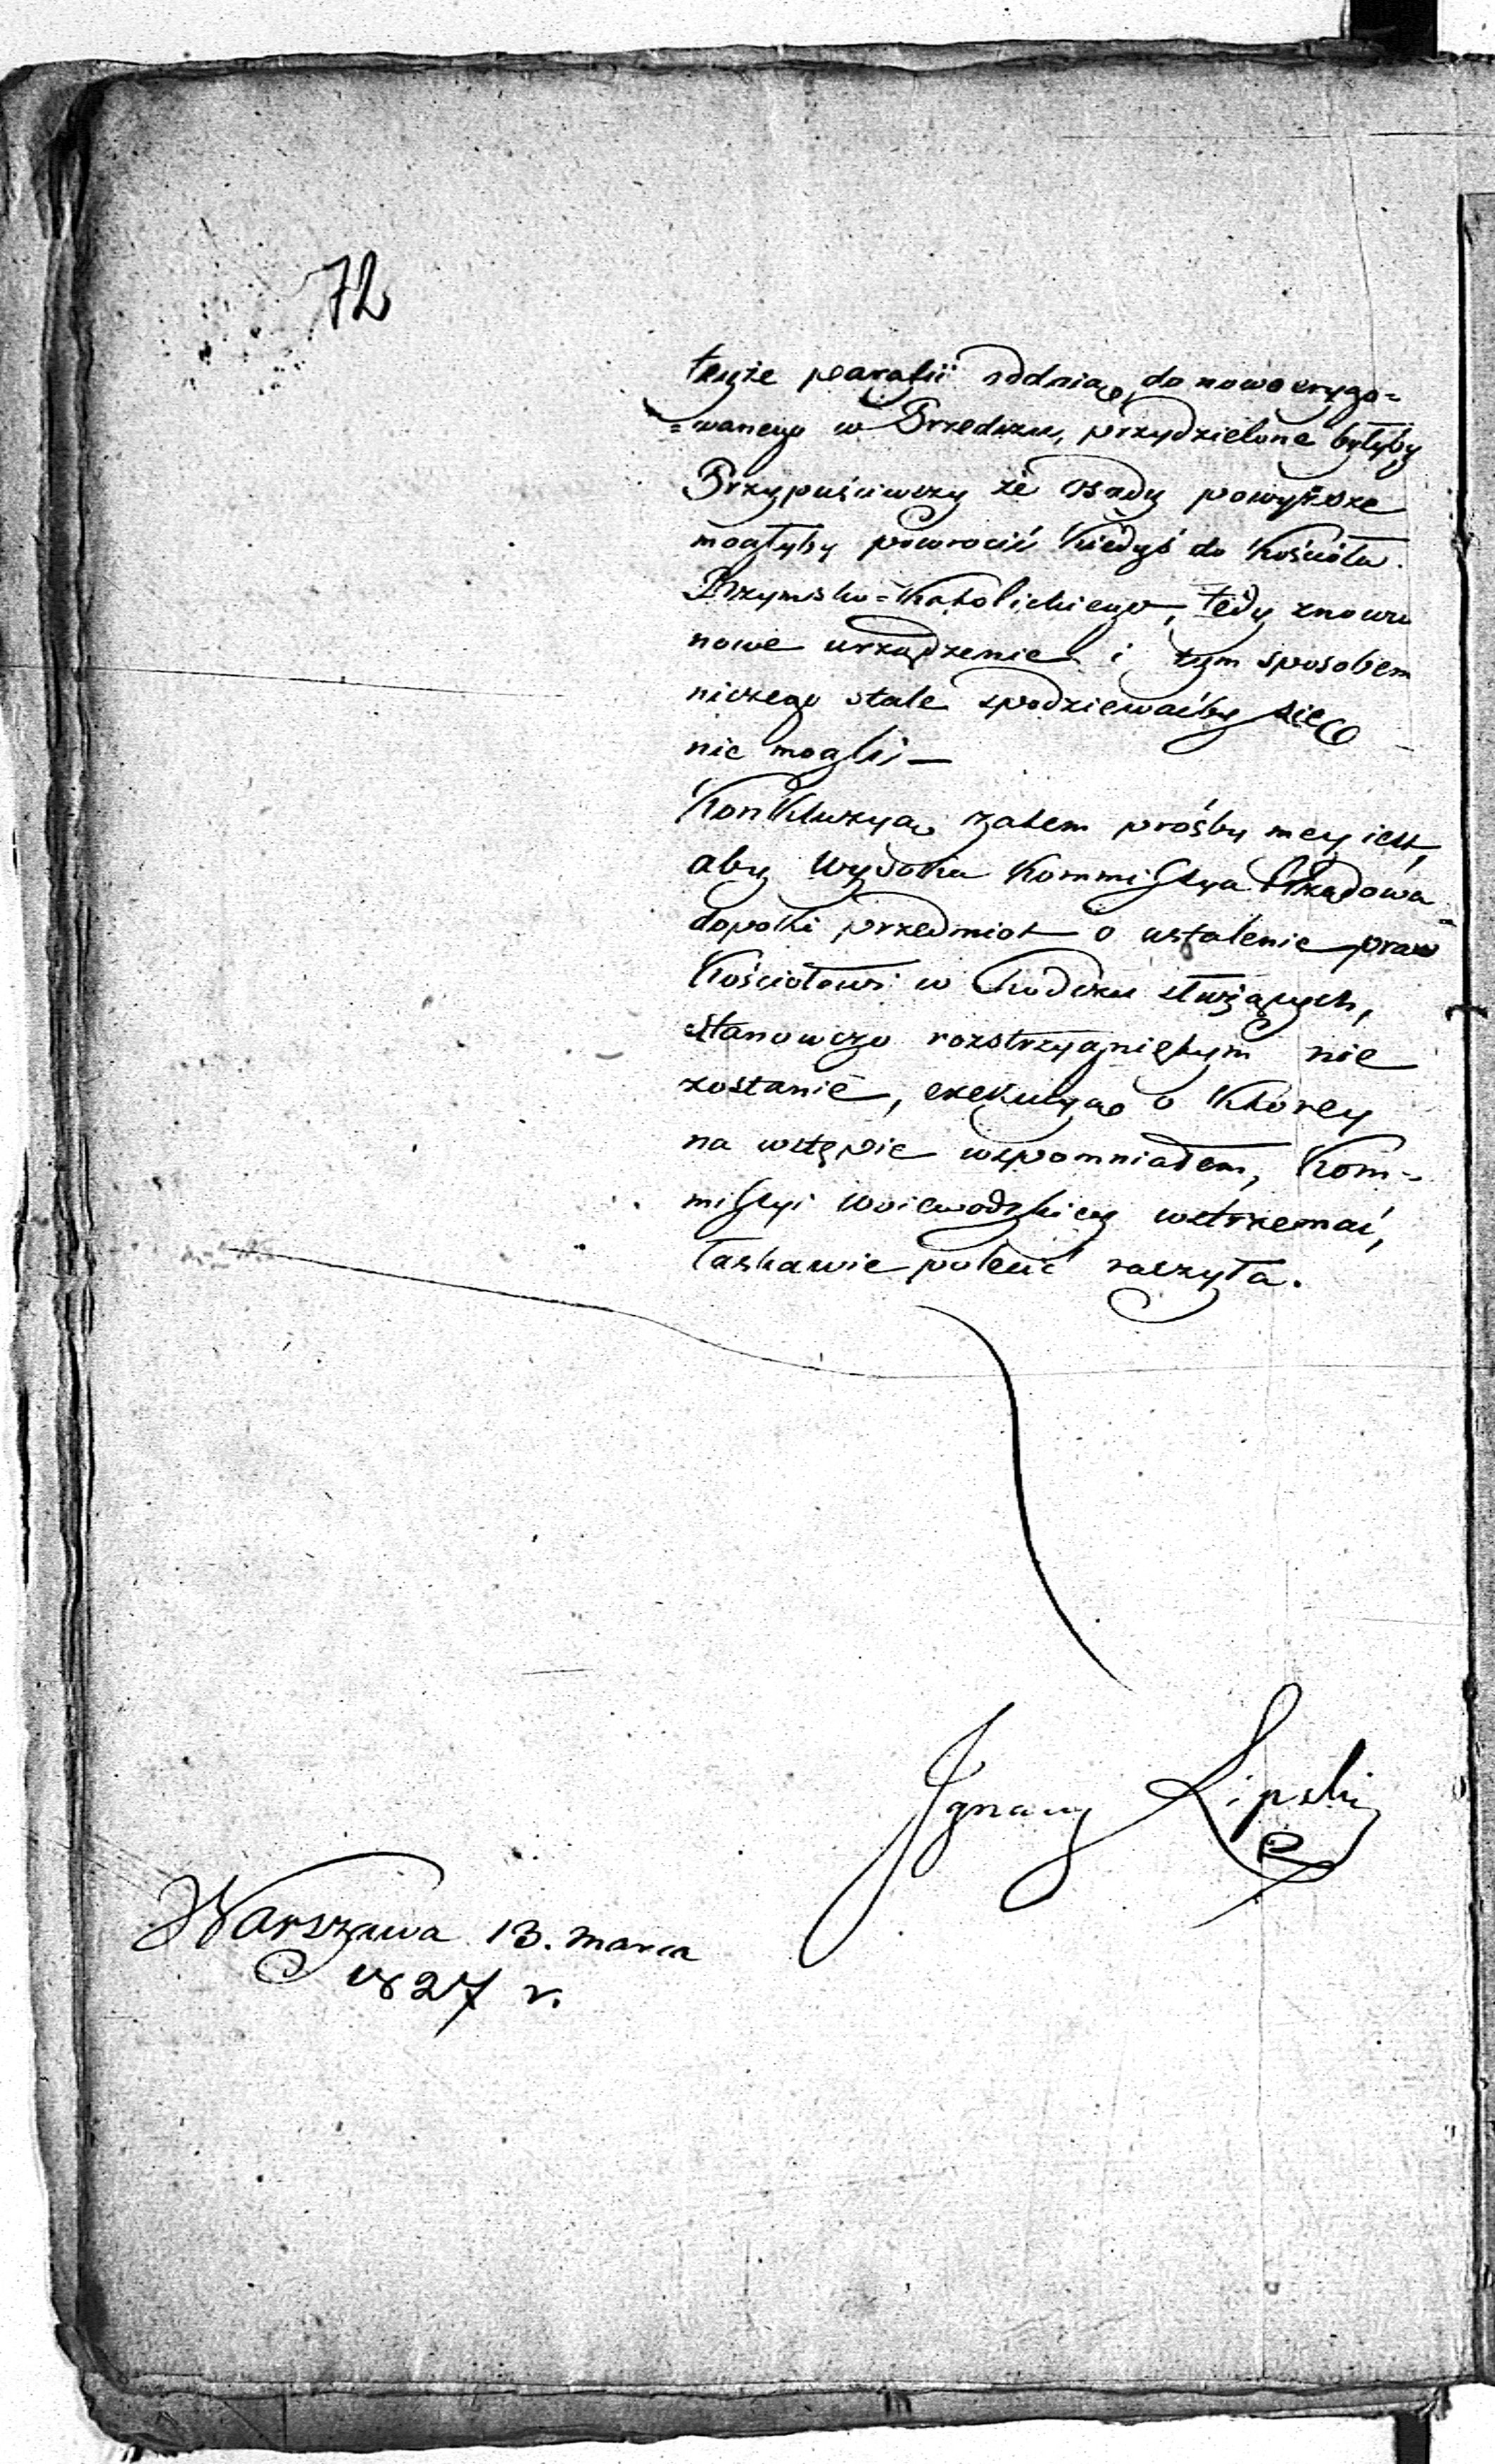 72
teyże parafii oddnią do nowo erygo=
=wanego w Przedczu, przydzielone byłyby
Przypuściwszy że osady powyższe
mogłyby powrocić kiedyś do Kościoła
Rzymsko=Katolickiego, tedy znowu
nowe urządzenie i tym sposobem
niczego stale spodziewaćby się
nie mogli —
Konkluzya zatem prośby mey iest,
aby Wysoka Kommissya Rządowa
dopoki przedmiot o ustalenie praw
Kościołowi w Chodczu służących,
stanowczo rozstrzygniętym nie
zostanie, exekucyą o ktorey
na wstępie wspomniałem, Kom-
missyi Woiewodzkiey wstrzemać,
łaskawie polecić raczyła.
Ignacy Lipski
Warszawa 13. marca
1827 r.